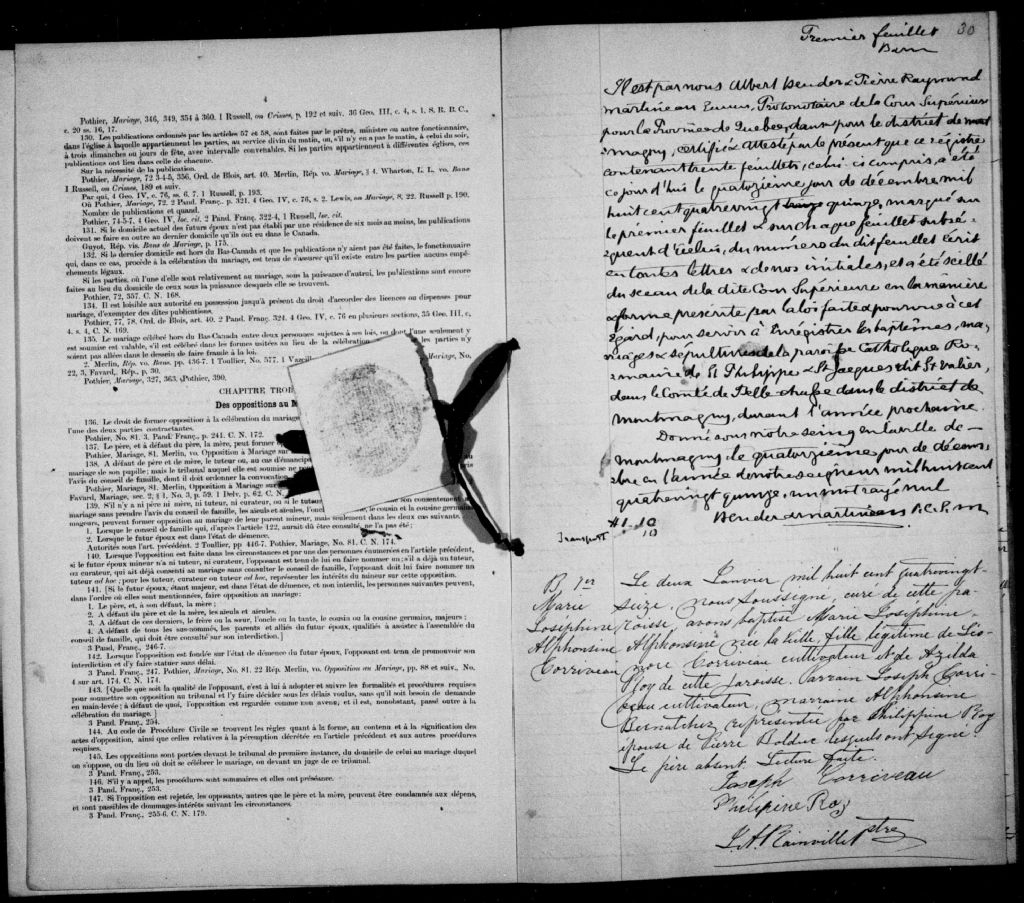 4
Pothier, Mariage, 346, 349, 354 à 360. 1 Russell, on Crimes, p. 192 et suiv. 36 Geo. III, c. 4, s. 1. S. R. B. C.,
c. 20 ss. 16, 17.
130. Les publications ordonnées par les articles 57 et 58, sont faites par le prêtre, ministre ou autre fonctionnaire,
dans l'église à laquelle appartiennent les parties, au service divin du matin, ou, s'il n'y en a pas le matin, à celui du soir,
à trois dimanches ou jours de fête, avec intervalle convenables. Si les parties appartiennent à différentes églises, ces
publications ont lieu dans celle de chacune.
Sur la nécessité de la publication.
Pothier, Mariage, 72 3-4-5, 356, Ord. de Blois, art. 40. Merlin, Rép. vo. Mariage, § 4. Wharton, L. L. vo. Bans
1 Russell, on Crimes, 189 et suiv.
Par qui, 4 Geo. IV, c. 76, ss. 6, 7. 1 Russell, p. 193.
Où Pothier, Mariage, 72. 2 Pand. Franç., p. 321. 4 Geo. IV, c. 76, s. 2. Lewis, on Mariage, 8, 22. Russell p. 190.
Nombre de publications et quand.
Pothier, 74-5-7. 4 Geo. IV, loc. cit. 2 Pand. Franç. 322-4, 1 Russell, loc. cit.
131. Si le domicile actuel des futurs époux n'est pas établi par une résidence de six mois au moins, les publications
doivent se faire en outre au dernier domicile qu'ils ont eu dans le Canada.
Guyot, Rép. vis. Bans de Mariage, p. 175.
132. Si le dernier domicile est hors du Bas-Canada et que les publications n'y aient pas été faites, le fonctionnaire
qui, dans ce cas, procède à la célébration du mariage, est tenu de s'assurer qu'il existe entre les parties aucuns empê-
chements légaux.
Si les parties, où l'une d'elles sont relativement au mariage, sous la puissance d'autrui, les publications sont encore
faites au lieu du domicile de ceux sous la puissance desquels elle se trouvent.
Pothier, 72, 357. C. N. 168.
134. Il est loisible aux autorité en possession jusqu'à présent du droit d'accorder les licences ou dispenses pour
mariage, d'exempter des dites publications.
Pothier, 77, 78. Ord. de Blois, art. 40. 2 Pand Franç. 324. 4 Geo. IV, c. 76 en plusieurs sections, 35 Geo. III, c.
4, s. 4, C. N. 169.
135. Le mariage célébré hors du Bas-Canada entre deux personnes sujettes à ses lois, ou dont l'une seulement y
est soumise est valable, s'il est célébré dans les formes usitées au lieu de la célébration les parties n'y
soient pas allées dans le dessein de faire fraude à la loi.
2. Merlin, Rép. vo. Bans. pp. 436-7. 1 Toullier, No. 577. 1 Mariage, No.
22, 3, Favard, Rép., p. 30.
Pothier, Mariage, 327, 363. (Pothier, 390.
CHAPITRE
Des oppositions au
136. Le droit de former opposition à la célébration du mariage
l'une des deux parties contractantes.
Pothier, No. 81. 3. Pand. Franç., p. 241. C. N. 172.
137. Le père, et à défaut du père, la mère, peut former
Pothier, Mariage, 81. Merlin, vo. Opposition à Mariage sur
138. A défaut de père et de mère, le tuteur ou, au cas d'émancipa
mariage de son pupille; mais le tribunal auquel elle est soumise ne
l'avis du conseil de famille, dont il doit ordonner la convocation
Pothier, Mariage, 81. Merlin, Opposition à Mariage sur
Favard, Mariage, sec. 2, § 1. No. 3, p. 59. 1 Delv, p. 62. C. N.
139. S'il n'y a ni père ni mère, ni tuteur, ni curateur, ou si le tuteur son consentement au
mariage sans prendre l'avis du conseil de famille, les aieuls et aieules, l'oncle le cousin et la cousine germains
majeurs, peuvent former opposition au mariage de leur parent mineur, mais seulement dans les deux cas suivants:
1. Lorsque le conseil de famille qui, d'après l'article 122, aurait dû être consulté, ne l'a pas été;
2. Lorsque le futur époux est dans l'état de démence.
Autorités sous l'art. précédent. 2 Toullier, pp 446-7. Pothier, Mariage, No. 81. C. N. 174.
140. Lorsque l'opposition est faite dans les circonstances et par une des personnes énumérées en l'article précédent,
si le futur époux mineur n'a ni tuteur, ni curateur, l'opposant est tenu de lui en faire nommer un: s'il a déjà un tuteur,
ou curateur, qui ait déjà consenti au mariage sans consulter le conseil de famille, l'opposant doit lui faire nommer un
tuteur ad hoc; pour les tuteur, curateur ou tuteur ad hoc, représenter les intérêts du mineur sur cette opposition.
141. [Si le futur époux, étant majeur, est dans l'état de démence, et non interdit, les personnes suivantes peuvent,
dans l'ordre où elles sont mentionnées, faire opposition au mariage:
1. Le père, et, à son défaut, la mère;
2. A défaut du père et de la mère, les aieuls et aieules.
3. A défaut de ces derniers, le frère ou la sœur, l'oncle ou la tante, le cousin ou la cousine germains, majeurs;
4. A défaut de tous les sus-nommés, les parents et alliés du futur époux, qualifiés à assister à l'assemblée du
conseil de famille, qui doit être consulté sur son interdiction.]
3 Pand. Franç., 246-7.
142. Lorsque l'opposition est fondée sur l'état de démence du futur époux, l'opposant est tenu de promouvoir son
interdiction et d'y faire statuer sans délai.
3 Pand. Franç., 247. Pothier, Mariage, No. 81. 22 Rép. Merlin, vo. Opposition au Mariage, pp. 88 et suiv., No.
4 sur art. 174. C. N. 174.
143. [Quelle que soit la qualité de l'opposant, c'est à lui à adopter et suivre les formalités et procédures requises
pour soumettre son opposition au tribunal et l'y faire décider sous les délais voulus, sans qu'il soit besoin de demande
en main-levée; à défaut de quoi, l'opposition est regardée comme non avenu, et il est, nonobstant, passé outre à la
célébration du mariage.]
3 Pand. Franç., 254.
144. Au code de Procédure Civile se trouvent les règles quant à la forme, au contenu et à la signification des
actes d'opposition, ainsi que celles relatives à la péremption décrétée en l'article précédent et aux autres procédures
requises.
145. Les oppositions sont portées devant le tribunal de première instance, du domicile de celui au mariage duquel
on s'oppose, ou du lieu où doit se célébrer le mariage, ou devant un juge de ce tribunal.
3 Pand. Franç., 253.
146. S'il y a appel, les procédures sont sommaires et elles ont préséance.
3 Pand. Franç., 253.
147. Si l'opposition est rejetée, les opposants, autres que le père et la mère, peuvent être condamnés aux dépens,
et sont passibles de dommages-intérêts suivant les circonstances.
3 Pand. Franç., 255-6. C. N. 179.
30
Premier feuillet
Il est par nous Albert Bender & Pierre Raymond
Martineau Ecuiers, Protonotaire de la Cour Supérieure
pour la Province de Quebec, dans & pour le district de Mont
magny, certifié & attesté par le présent que ce régistre
contenant trente feuillets, celui ci compris, a été
ce jour d'hui le quatorzième jour de décembre mil
huit cent quatre vingt quinze, marqué sur
le premier feuillet & sur chaque feuillet subsé-
quent d'icelui, du numéro du dit feuillet écrit
en toutes lettres & de nos initiales, et a été scellé
du sceau de la dite Cour Supérieure en la manière
& forme prescrite par la loi faite & pourvue à cet
égard, pour servir à Enregistrer les baptêmes, ma-
riages & sépultures de la paroisse Catholique Ro-
maine de St Philippe & St Jacques dit St Valier,
dans le Comté de Bellechasse dans le district de
Montmagny, durant l'année prochaine.
Donné sous notre seing en la ville de
Montmagny, le quatorzième jour de décem-
bre en l'année de notre seigneur mil huit cent
quatre vingt quinze, un mot rayé nul
Bender & Martineau P.C.S. M
#1.10
Transport 10
B. 1er
Marie
Joséphine
Alphonsine
Corriveau
Le deux Janvier mil huit cent quatrevingt-
seize, nous soussigné, curé de cette pa-
roisse, avons baptisé Marie Joséphine-
Alphonsine née la veille, fille légitime de Léo-
nore Corriveau cultivateur et de Azilda
Roy de cette paroisse. Parrain Joseph Corri-
veau cultivateur, marraine Alphonsine
Bernatchez représentée par Philippine Roy
épouse de Pierre Bolduc lesquels ont signé
Le père absent. Lecture faite.
Joseph Corriveau
Philipine Roy
L. A. Rainville Ptre